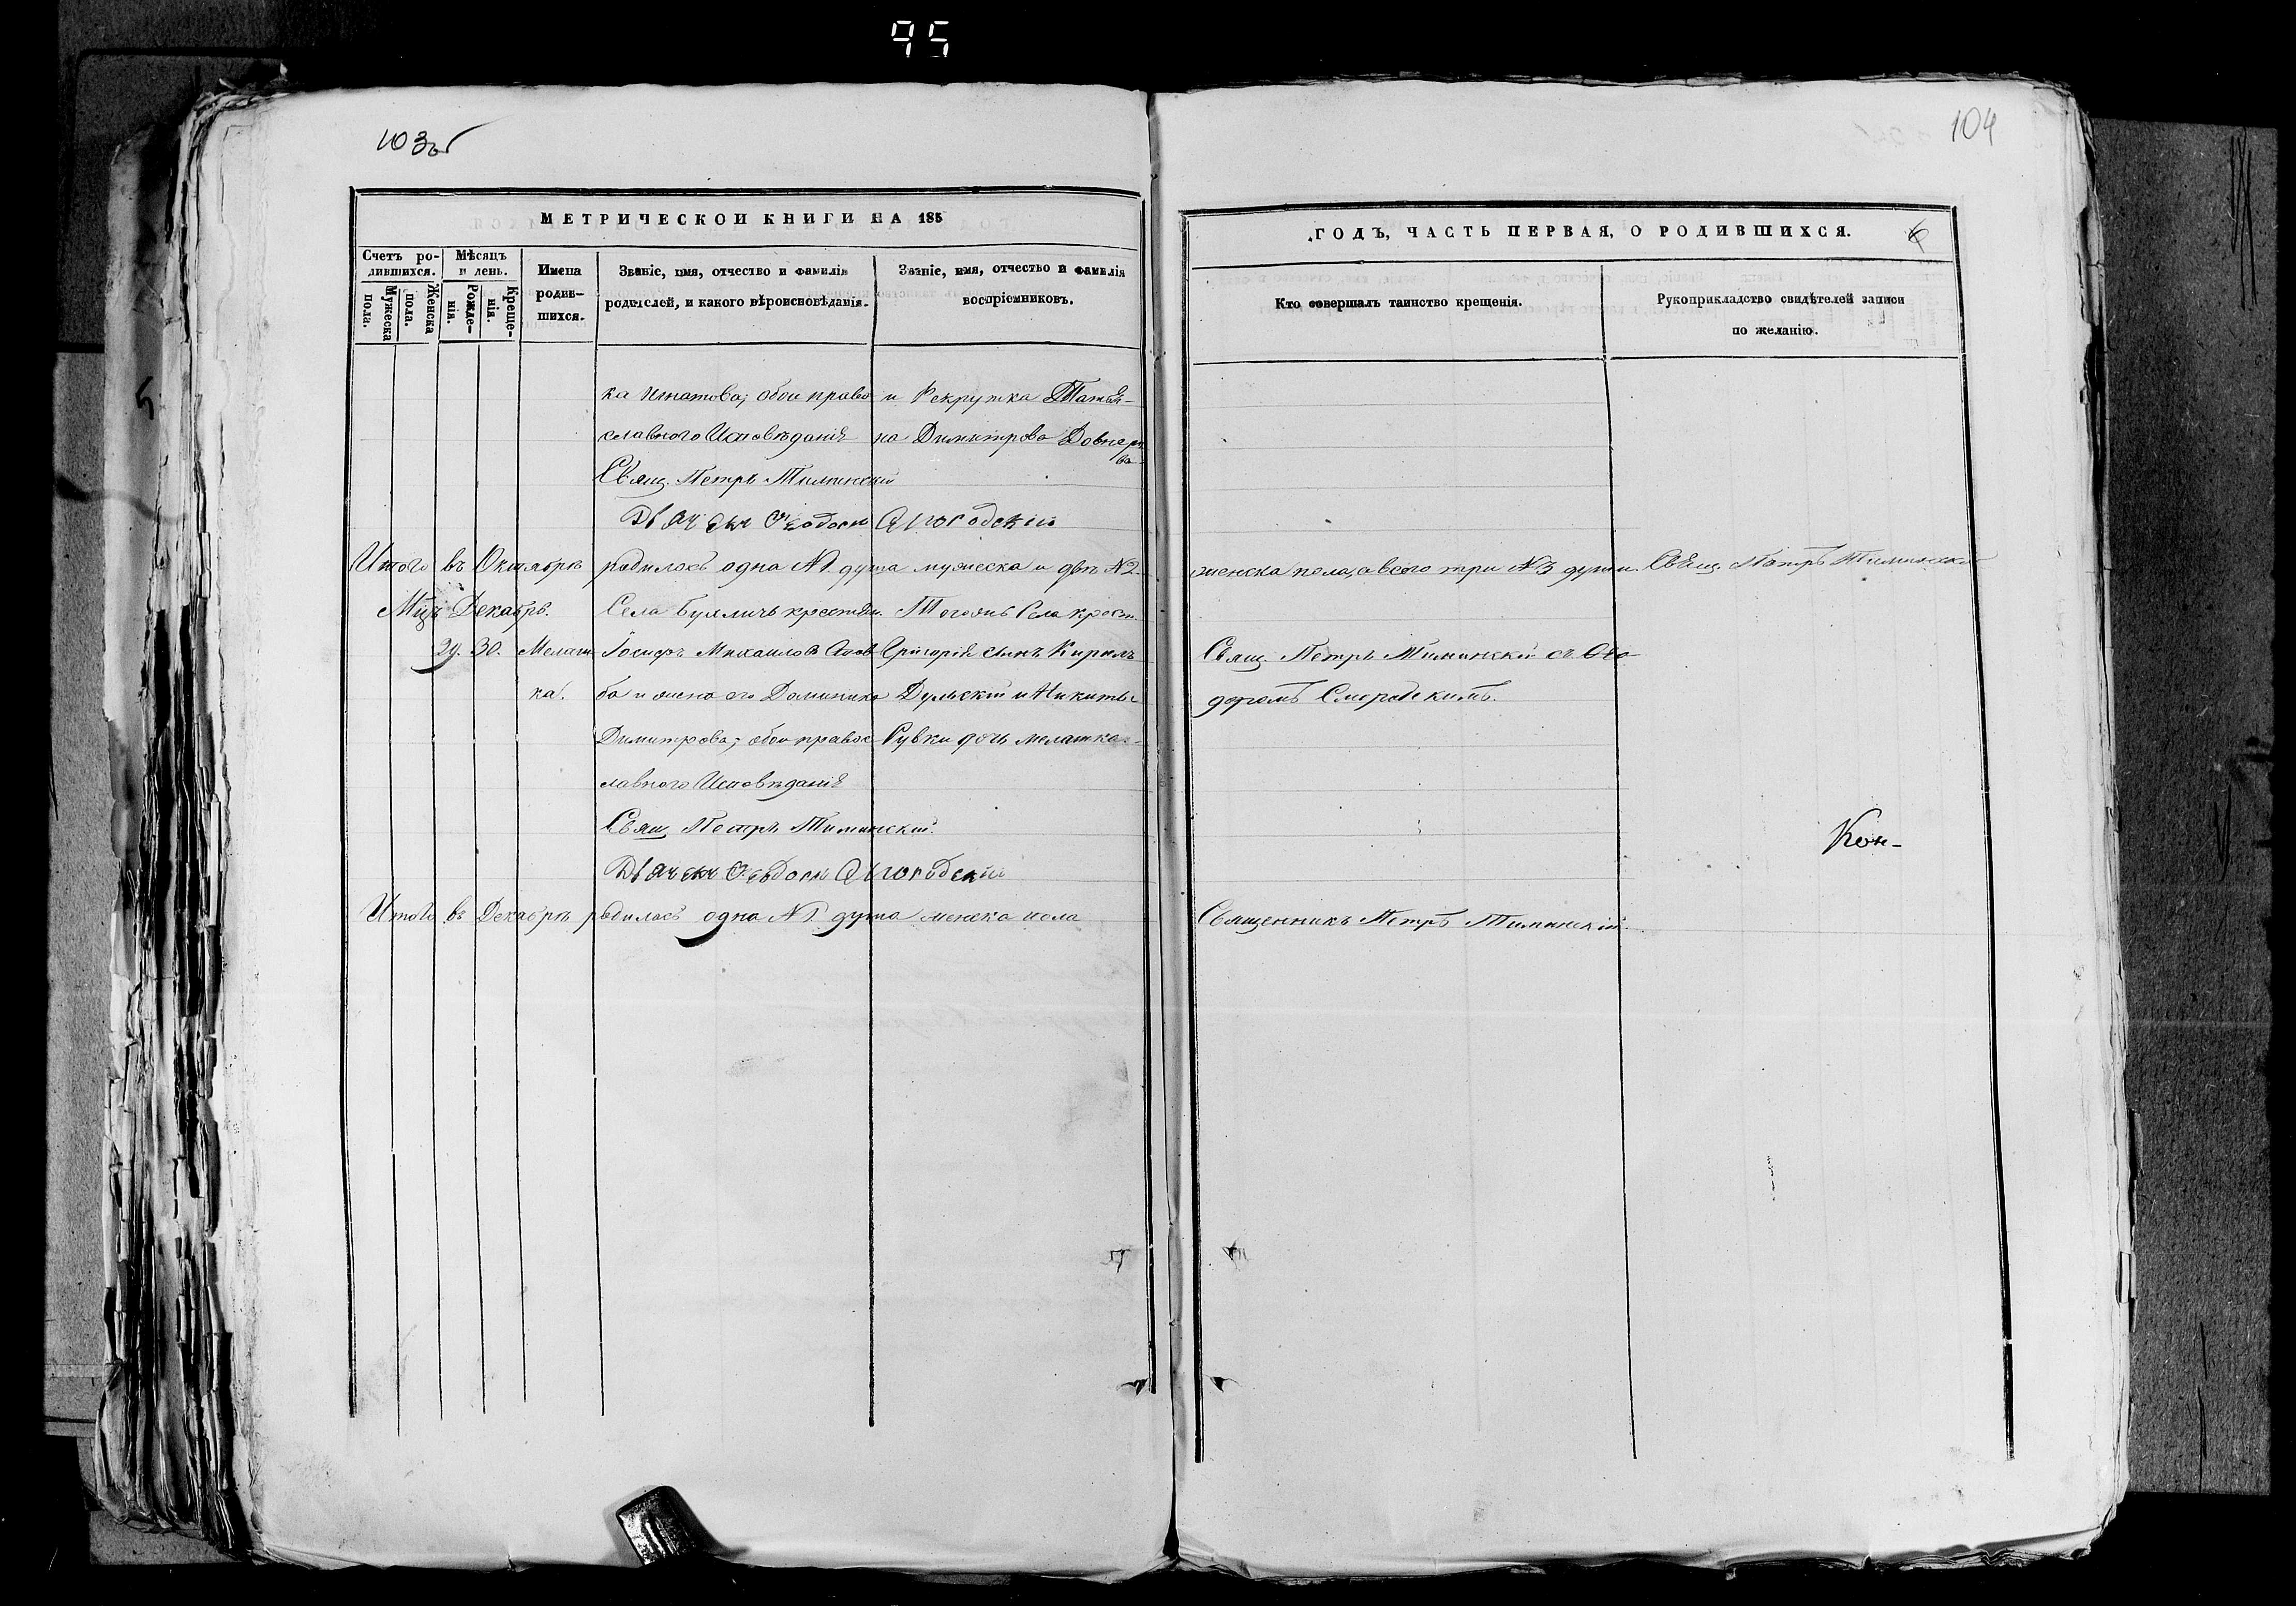 95
103об
104
МЕТРИЧЕСКОЙ КНИГИ НА 185
ГОДЪ, ЧАСТЬ ПЕРВАЯ, О РОДИВШИХСЯ.
6
Счетъ родившихся.
Мужеска пола.
Женска пола.
Мѣсяцъ и день.
Рожденія.
Крещенія.
Имена родившихся.
Званіе, имя, отчество и фамилія
родителей, и какого вѣроисповѣданія.
Званіе, имя, отчество и фамилія
воспріемниковъ.
Кто совершалъ таинство крещенія.
Рукоприкладство свидѣтелей записи
по желанію.
ка Игнатова; обои право и Рекрутка Татья-
славнаго Исповѣданія на Димитрова
Свящ. Петръ Тиминскій
Дьячекъ
Итого въ Октябрѣ родилось одна №1 душа мужеска и двѣ №2
женска пола, а всего три №3 души. Свящ. Петръ Тиминскій
Мцъ Декабрь. Села крестьян. Тогожъ Села крест.
29. 30. Мелаш- Іосифъ Михайловъ Григорія сынъ Кирилъ
Свящ. Петръ Тиминскій съ Ѳео-
ка. ба и жена его Доминика и Никиты
Димитрова; обои правос- дочь Мелашка
лавнаго Исповѣданія
Свящ. Петръ Тиминскій.
Дьячекъ
Кон-
Итого въ Декабрѣ родилось одна №1 душа женска пола
Священникъ Петръ Тиминскій.